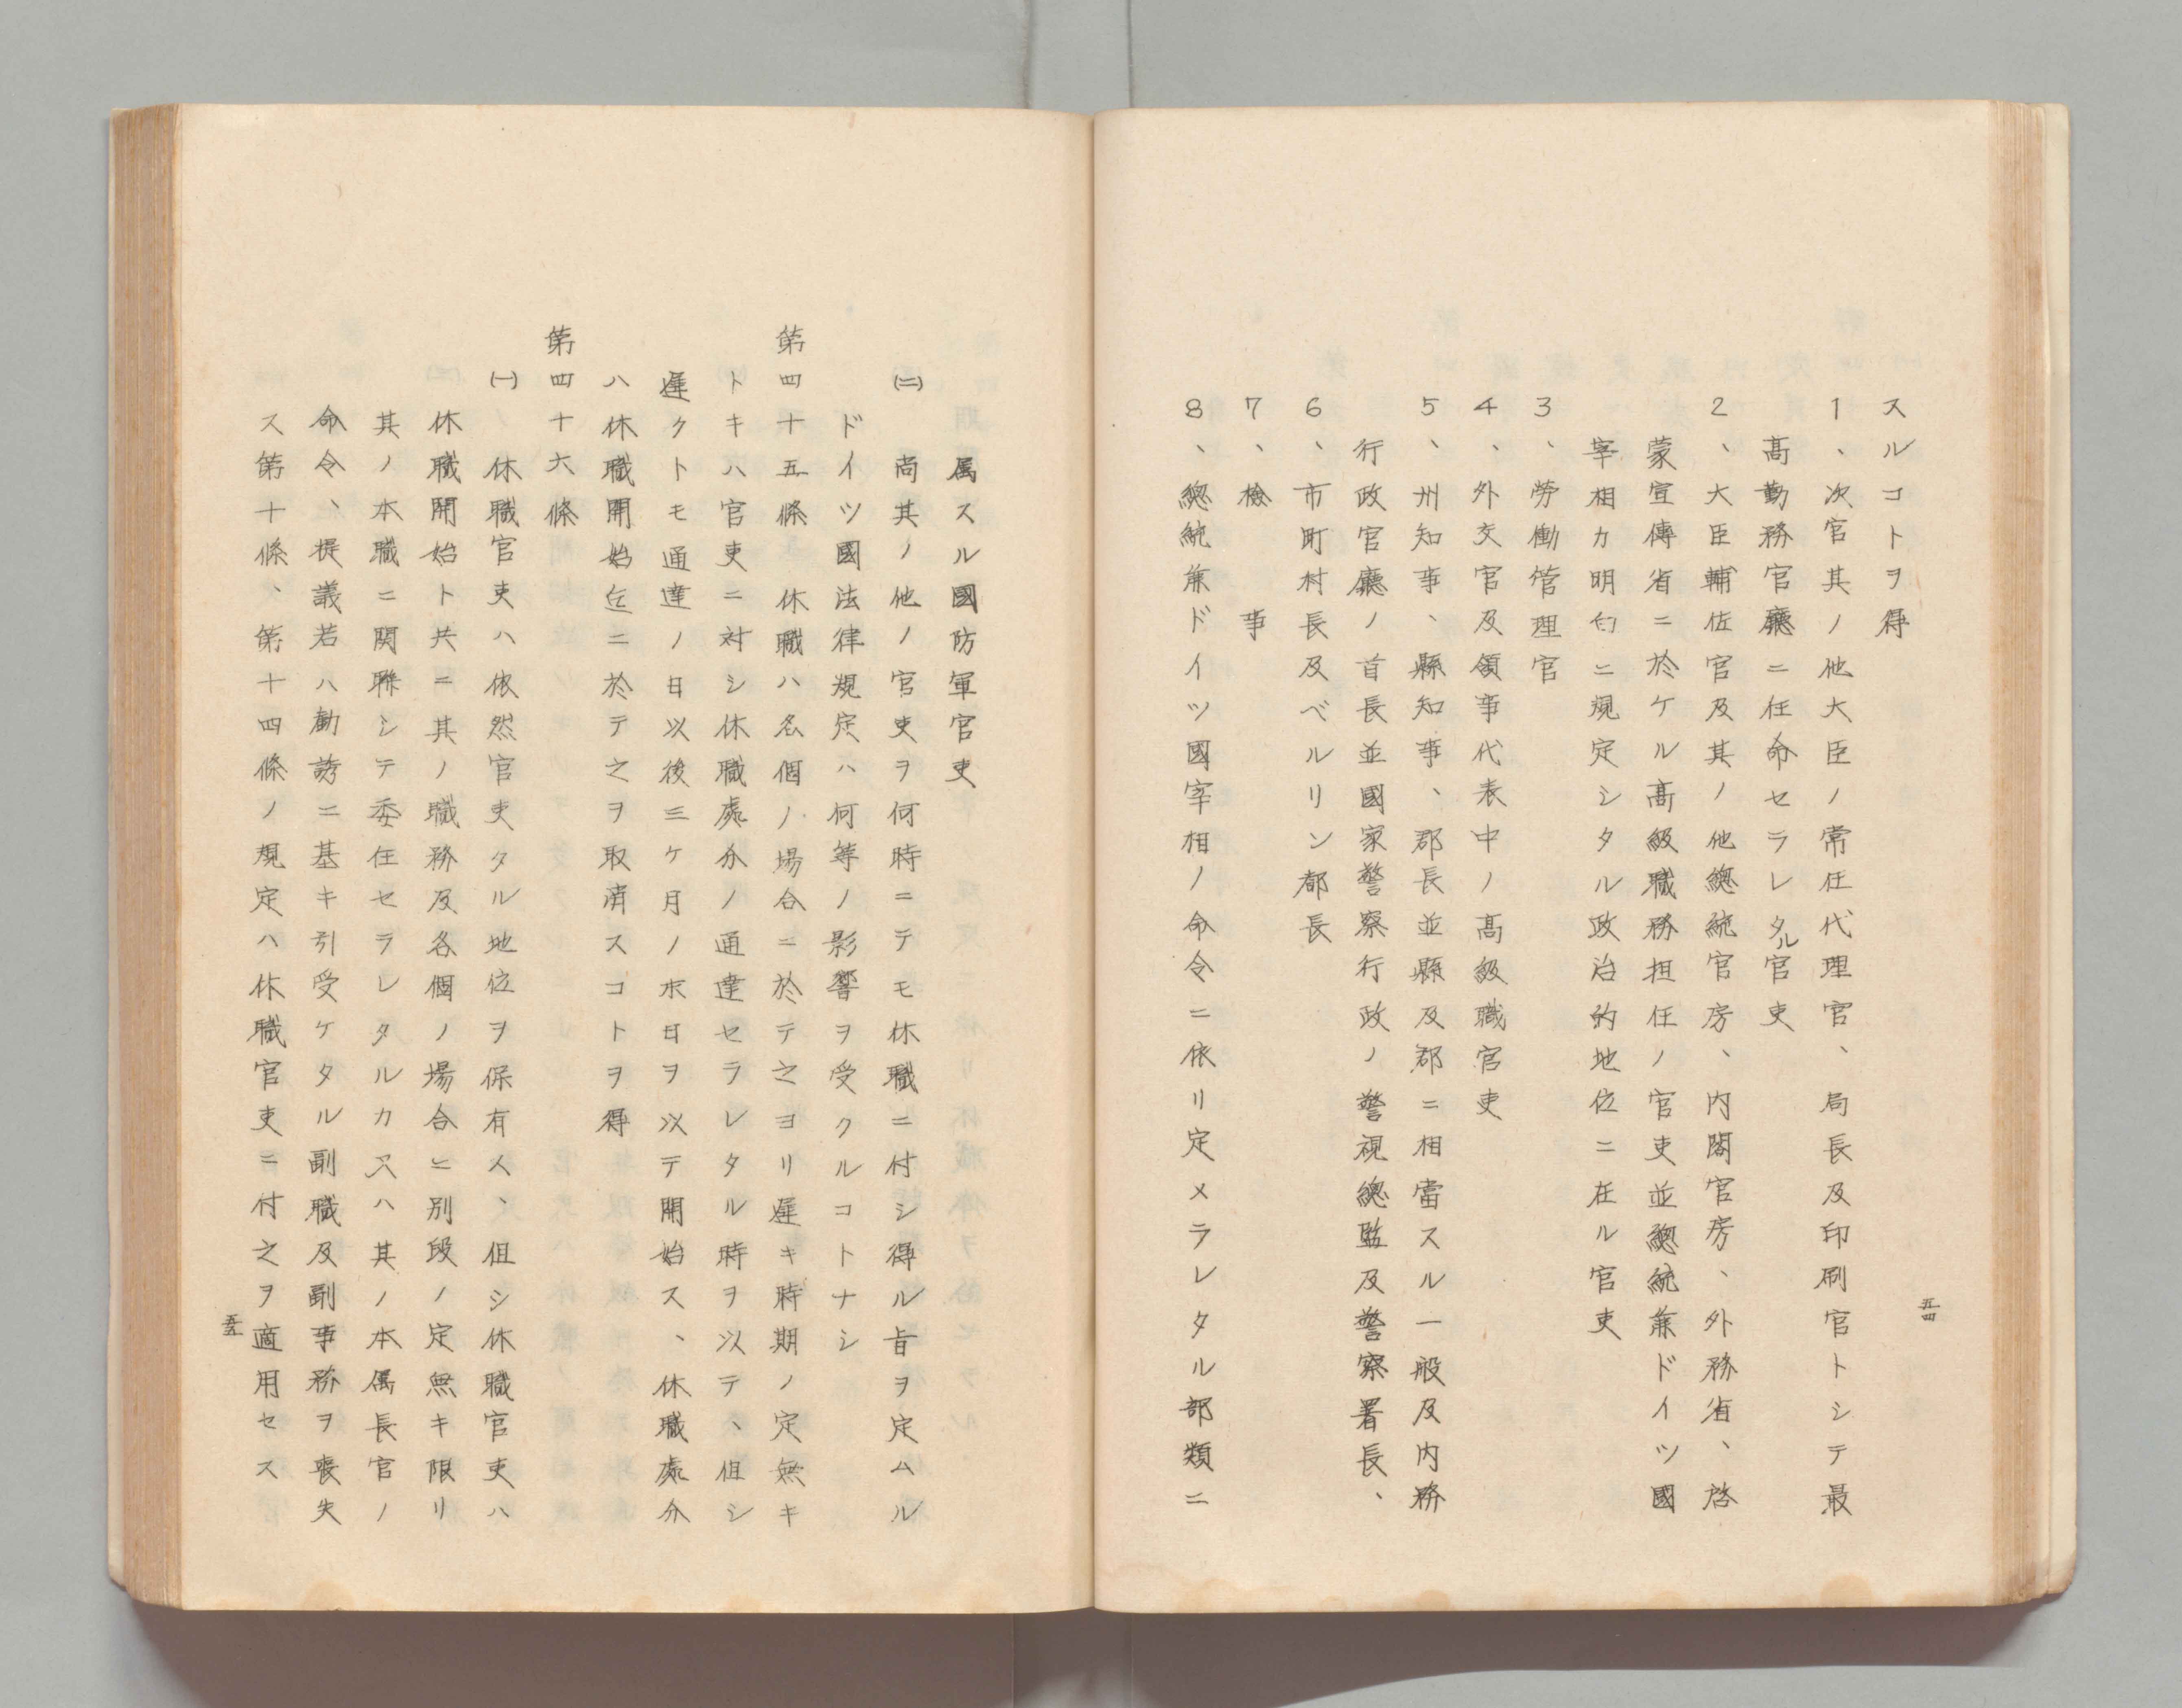 スルコトヲ得
1、次官其ノ他大臣ノ常任代理官、局長及印刷官トシテ最
高勤務官廳ニ任命セラレタル官吏
2、大臣輔佐官及其ノ他總統官房、内閣官房、外務省、啓
蒙宣傳省ニ於ケル高級職務担任ノ官吏並總統兼ドイツ國
宰相カ明白ニ規定シタル政治的地位ニ在ル官吏
3、勞働管理官
4、外交官及領事代表中ノ高級職官吏
5、州知事、縣知事、郡長並縣及郡ニ相當スル一般及内務
行政官廳ノ首長並國家警察行政ノ警視總監及警察署長、
6、市町村長及ベルリン都長
7、檢事
8、總統兼ドイツ國宰相ノ命令ニ依リ定メラレタル部類ニ
五四
属スル國防軍官吏
㈡　尚其ノ他ノ官吏ヲ何時ニテモ休職ニ付シ得ル旨ヲ定ムル
ドイツ國法律規定ハ何等ノ影響ヲ受クルコトナシ
第四十五條　休職ハ各個ノ場合ニ於テ之ヨリ遲キ時期ノ定無キ
トキハ官吏ニ対シ休職處分ノ通達セラレタル時ヲ以テ、但シ
遲クトモ通達ノ日以後三ケ月ノ末日ヲ以テ開始ス、休職處分
ハ休職開始迄ニ於テ之ヲ取消スコトヲ得
第四十六條
㈠　休職官吏ハ依然官吏タル地位ヲ保有ス、但シ休職官吏ハ
休職開始ト共ニ其ノ職務及各個ノ場合ニ別段ノ定無キ限リ
其ノ本職ニ関聯シテ委任セラレタルカ又ハ其ノ本属長官ノ
命令、提議若ハ勧誘ニ基キ引受ケタル副職及副事務ヲ喪失
ス第十條、第十四條ノ規定ハ休職官吏ニ付之ヲ適用セス
五五